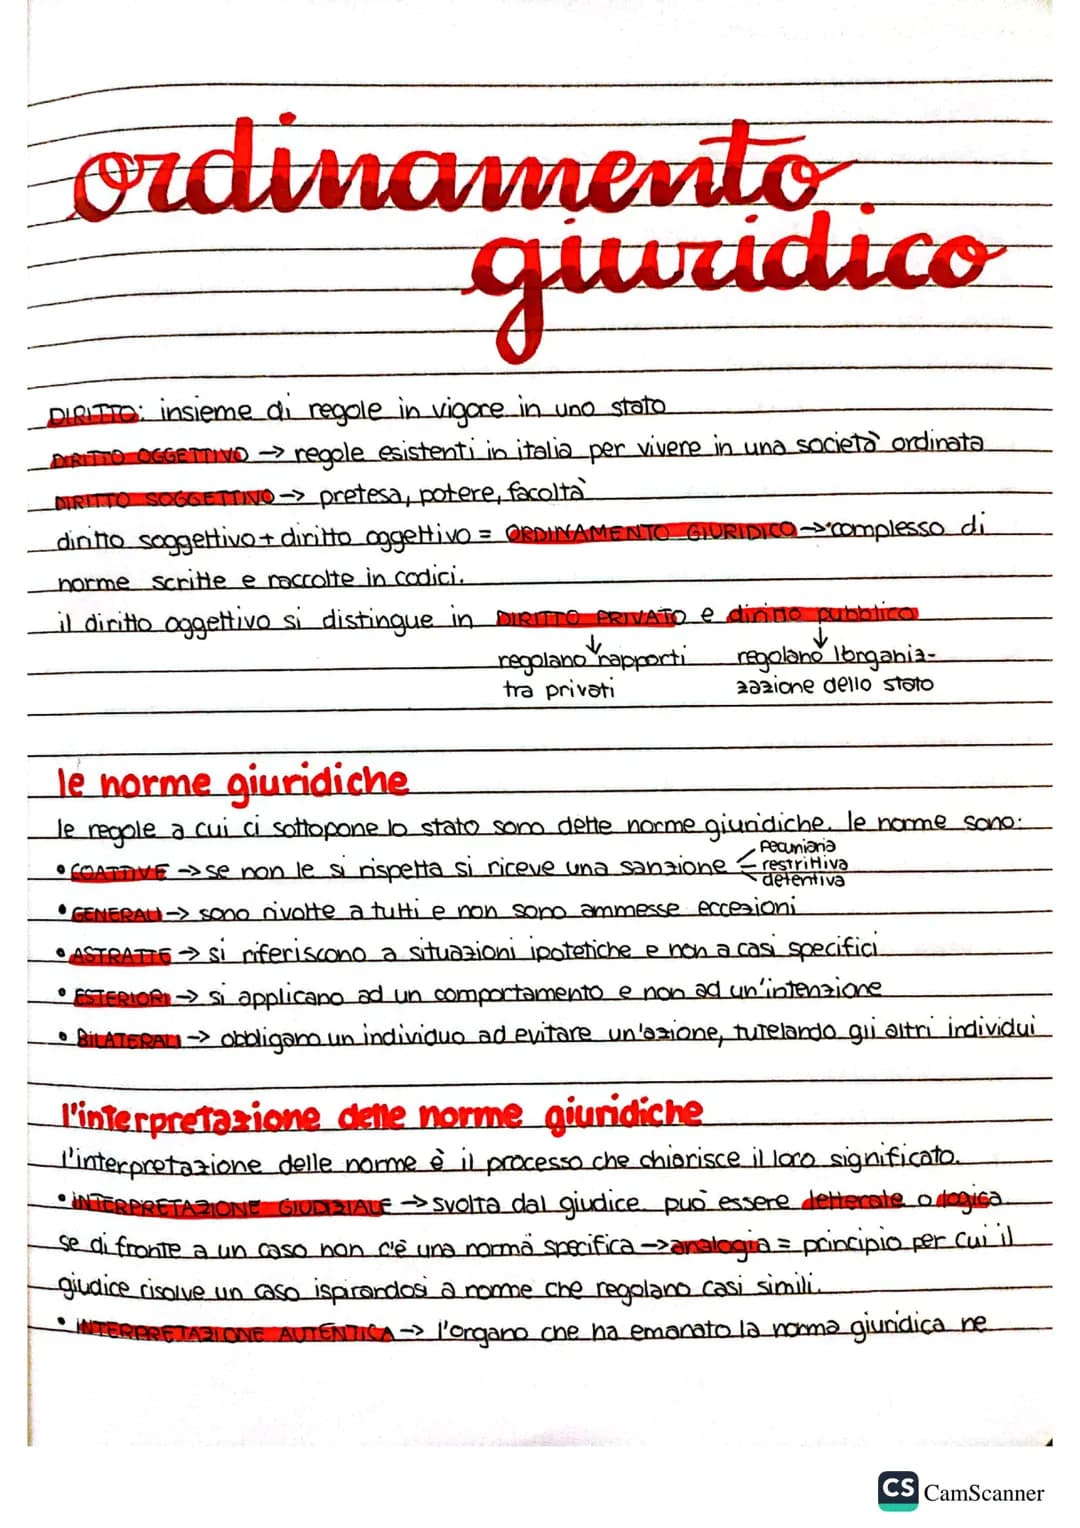 ordinamento
giuridico
DIRITTO: insieme di regole in vigore in uno stato
DIRITTO OGGETTIVO → regole esistenti in italia per vivere in una società ordinata
DIRITTO SOGGETTIVO → pretesa, potere, facoltà
diritto soggettivo + diritto oggettivo = ORDINAMENTO GIURIDICO → complesso di
norme scritte e raccolte in codici.
il diritto oggettivo si distingue in DIRITTO PRIVATO e diritto pubblico
regolano rapporti
tra privati
regolano l'organiz-
zazione dello stato
le norme giuridiche
le regole a cui ci sottopone lo stato sono dette norme giuridiche. le norme sono:
• COATTIVE → se non le si rispetta si riceve una sanzione
pecuniaria
restrittiva
detentiva
• GENERALI → sono rivolte a tutti e non sono ammesse eccezioni
• ASTRATTE → si riferiscono a situazioni ipotetiche e non a casi specifici
• ESTERIORI → si applicano ad un comportamento e non ad un'intenzione
• BILATERALI → obbligano un individuo ad evitare un'azione, tutelando gli altri individui
l'interpretazione delle norme giuridiche
l'interpretazione delle norme è il processo che chiarisce il loro significato.
• INTERPRETAZIONE GIUDIZIALE → svolta dal giudice. può essere letterale o logica.
se di fronte a un caso non c'è una norma specifica → analogia = principio per cui il
giudice risolve un caso ispirandosi a norme che regolano casi simili.
• INTERPRETAZIONE AUTENTICA → l'organo che ha emanato la norma giuridica ne
CS CamScanner